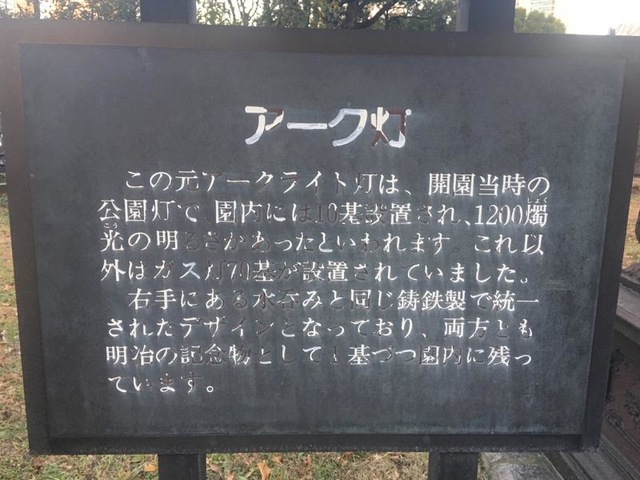 アーク灯
この元アークライト灯は、開園当時の
公園灯で園内には10基設置され、1200燭
しょく
光の明るさがあったといわれます これ以
こう
外はガス灯70基が設置されていました。
右手にある水呑みと同じ鋳鉄製で統一
されたデザインとなっており、両方とも
明治の記念物として1基づつ園内に残っ
ています。